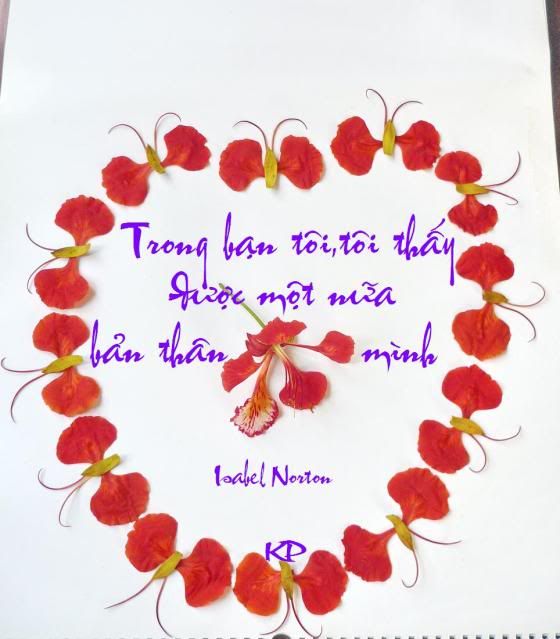 Trong bạn tôi,tôi thấy
được một nữa
bản thân mình
Isabel Norton
KP